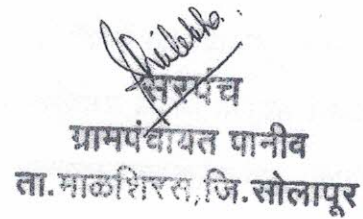 सरपंच
ग्रामपंचायत पानीव
ता.माळशिरस,जि.सोलापूर